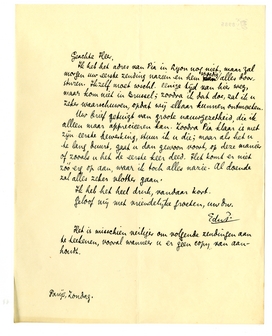 Geachte Heer,
Ik heb het adres van Pia in Lyon nog niet, maar zal
morgen uw eerste zending nazien en hem alles door-
sturen. Hijzelf moet wschl. eenige tijd van hier weg,
maar kom niet in Brussel; zoodra ik dat doe zal ik u
zeker waarschuwen, opdat wij elkaar kunnen ontmoeten.
Uw brief getuigt van groote nauwgezetheid, die ik
alleen maar apprecieeren kan. Zoodra Pia klaar is met
zijn eerste bewerking, stuur ik u die; maar als het u
te lang duurt, gaat u dan gewoon voort, op deze manier
of zooals u het de eerste keer deed. Het komt er niet
zoo erg op aan, maar is toch alles marie. Al doende
zal alles zeker vlotter gaan.
Ik heb het heel druk, vandaar kort.
Geloof mij met vriendelijke groeten, uw dw.
Het is misschien veiliger om volgende zendingen aan
te teekenen, vooral wanneer u er geen copy van aan-
houdt.
Parijs, Zondag.